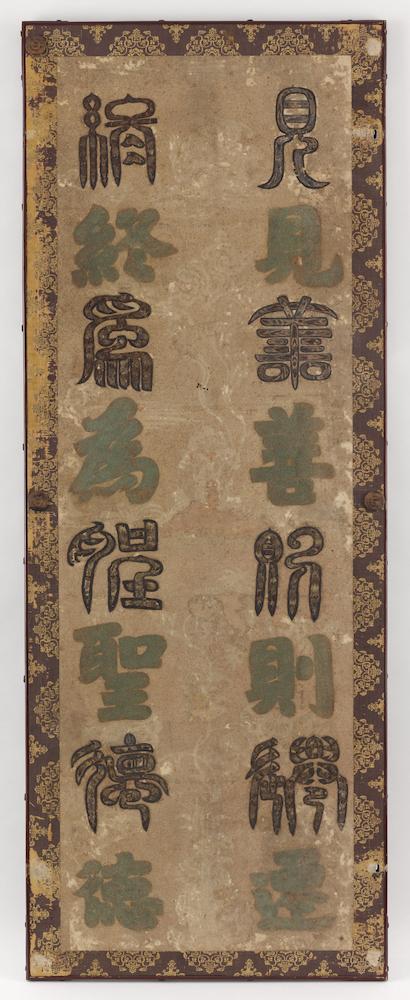 見見善善則則遷遷
終終為為聖聖德德